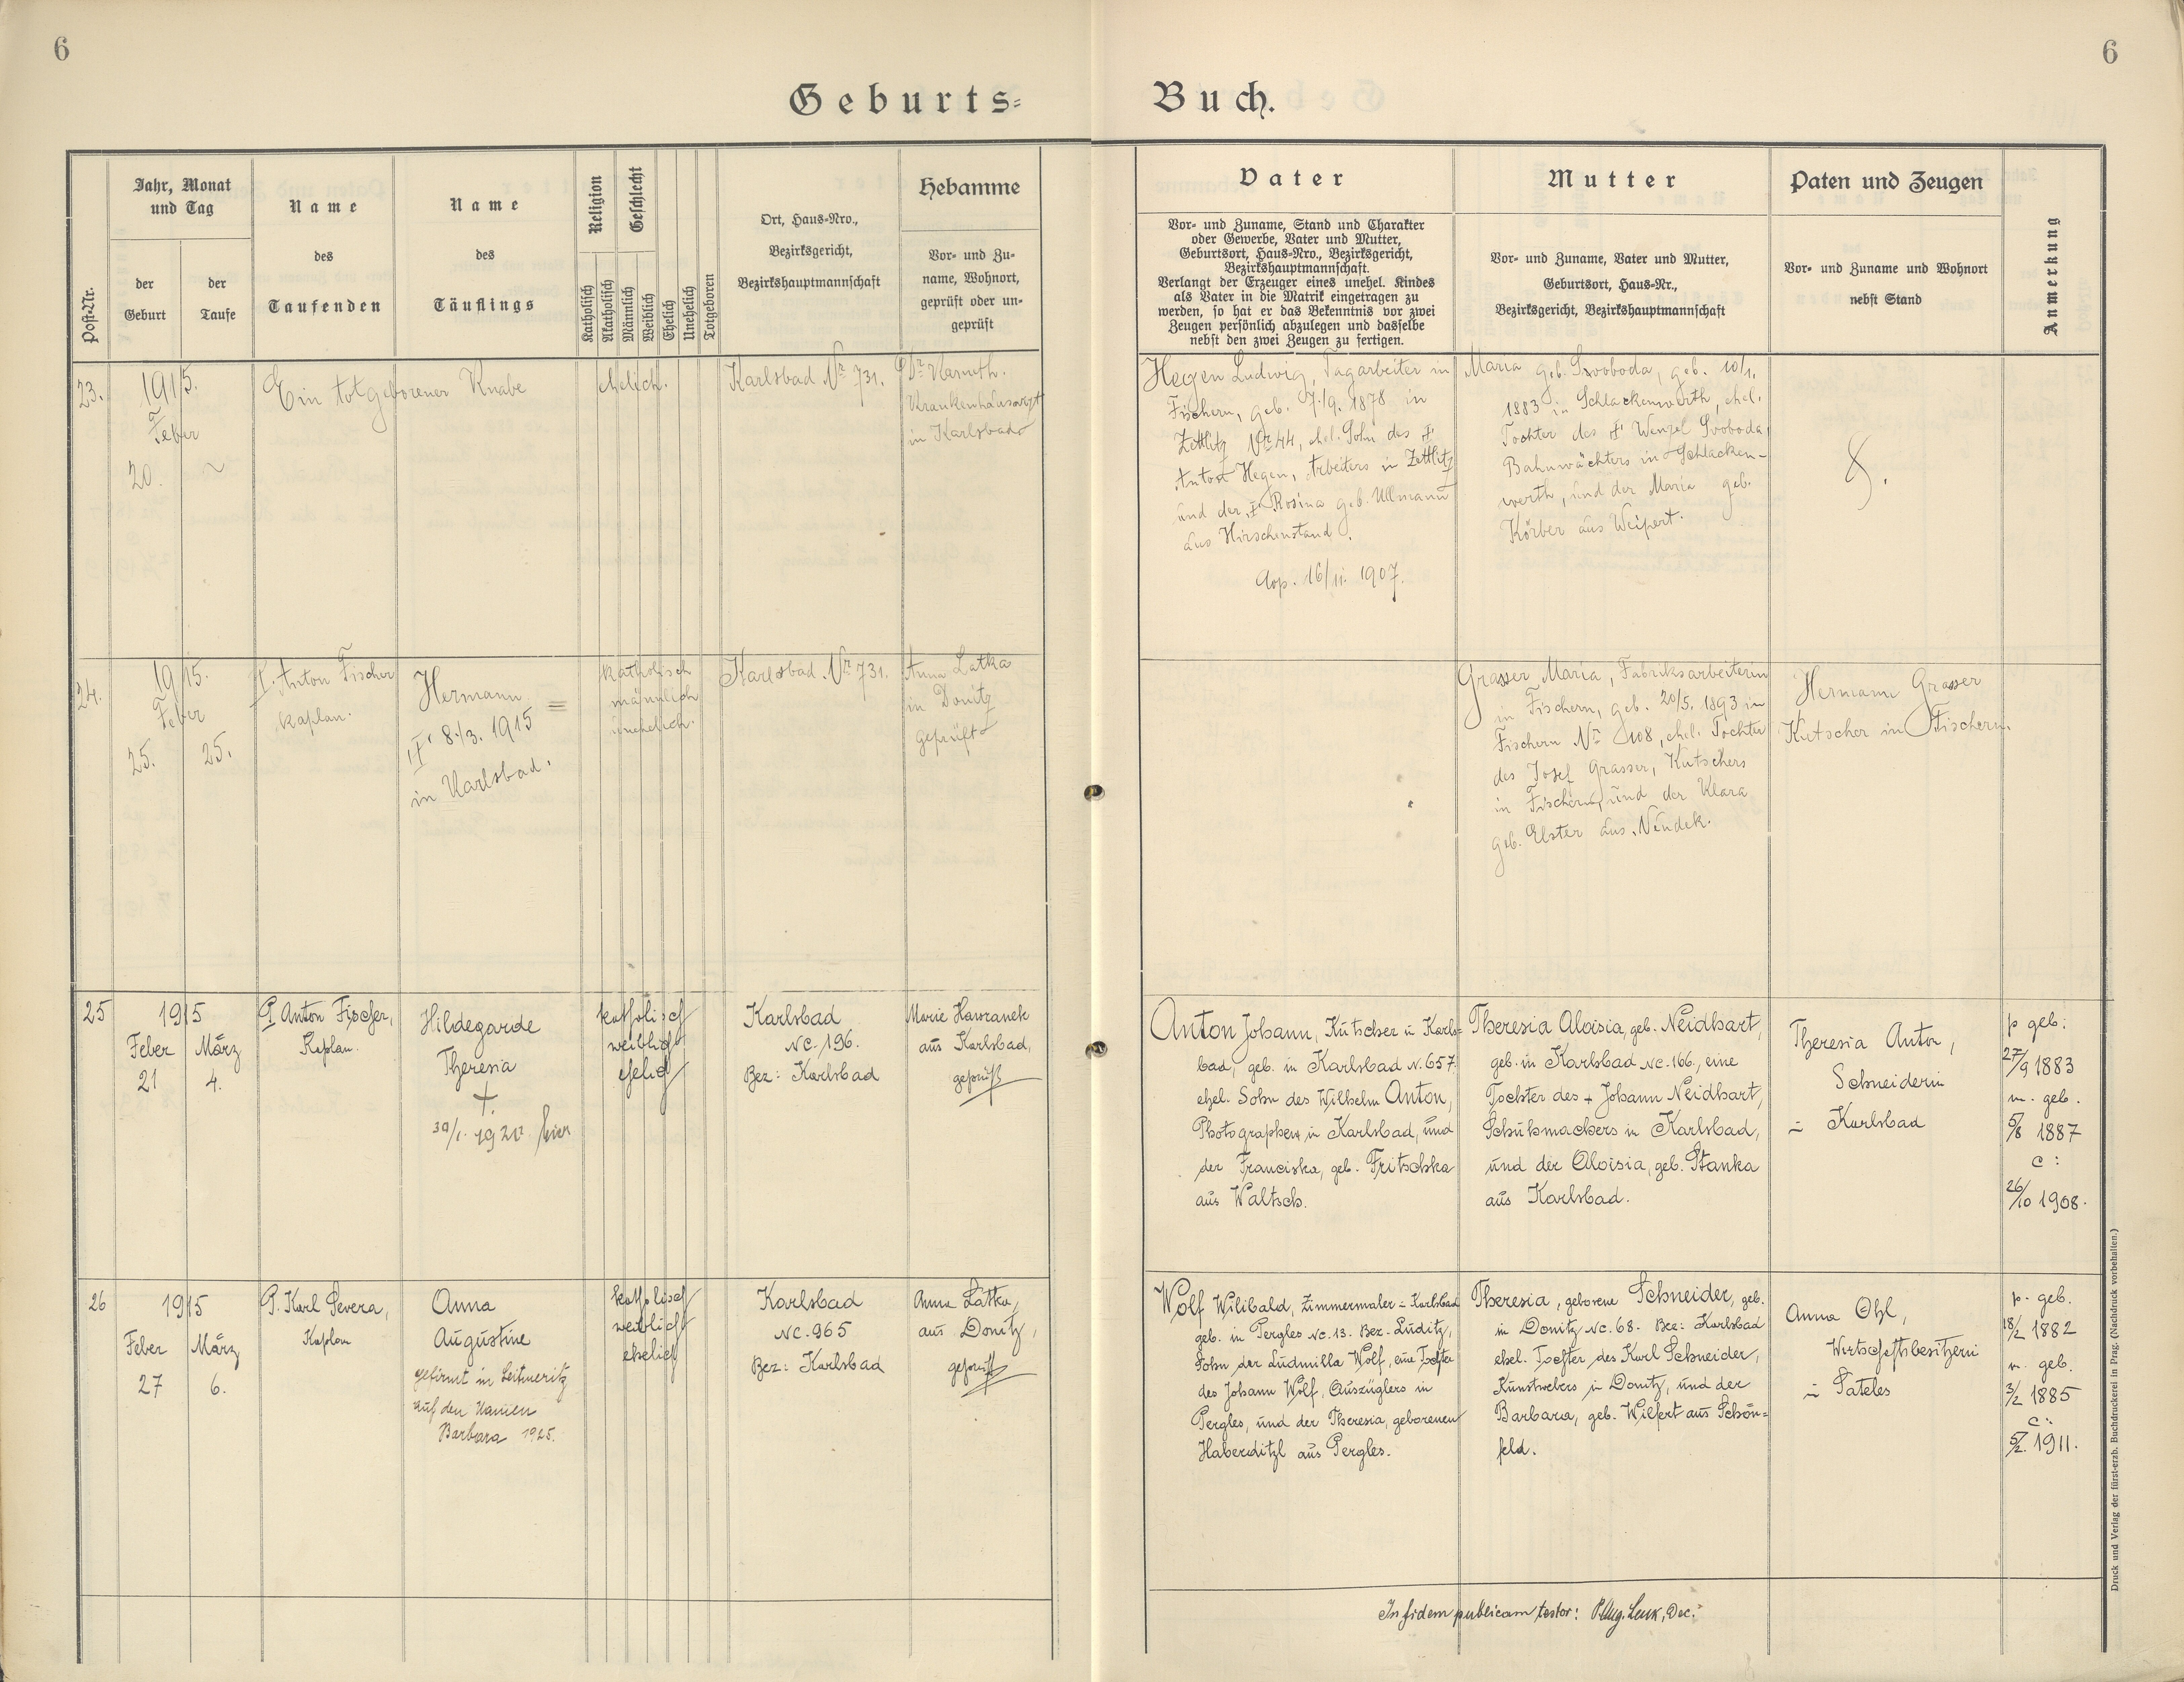 6
6
Geburts=
Buch.
Post-Nr.
Jahr, Monat
und Tag
der
Geburt
der
Taufe
Name
des
Taufenden
Name
des
Täuflings
Religion
Geschlecht
Katholisch
Akatholisch
Männlich
Weiblich
Ehelich
Unehelich
Totgeboren
Ort, Haus=Nro.,
Bezirksgericht,
Bezirkshauptmannschaft
Hebamme
Vor= und Zu=
name, Wohnort,
geprüft oder un=
geprüft
Vater
Vor= und Zuname, Stand und Charakter
oder Gewerbe, Vater und Mutter,
Geburtsort, Haus=Nro., Bezirksgericht,
Bezirkshauptmannschaft.
Verlangt der Erzeuger eines unehel. Kindes
als Vater in die Matrik eingetragen zu
werden, so hat er das Bekenntnis vor zwei
Zeugen persönlich abzulegen und dasselbe
nebst den zwei Zeugen zu fertigen.
Mutter
Vor= und Zuname, Vater und Mutter,
Geburtsort, Haus=Nr.,
Bezirksgericht, Bezirkshauptmannschaft
Paten und Zeugen
Vor= und Zuname und Wohnort
nebst Stand
Anmerkung
23.
1915.
Feber
20. ~
Ein totgeborener Knabe
ehelich.
Karlsbad Nr 731.
Dr.
Krankenhausarzt
in Karlsbad
Hegen Ludwig, Tagarbeiter in
Fischern, geb. 7./9. 1878 in
Zettlitz Nr 44, ehel. Sohn des †
Anton Hegen, Arbeiters in Zettlitz
und der † Rosina geb. Ullmann
aus Hirschenstand.
Cop. 16/11. 1907.
Maria geb. Svoboda, geb. 10/1.
1883 in Schlackenwerth, ehel.
Tochter des † Wenzel Svoboda,
Bahnwächters in Schlacken-
werth, und der Maria geb.
Körber aus Weipert.
24.
1915.
Feber
25. 25.
P. Anton Fischer
Kaplan.
Hermann =
† 8./3. 1915
in Karlsbad.
katholisch
männlich
unehelich.
Karlsbad. Nr 731.
Anna Latka
in Donitz
geprüft
Grasser Maria, Fabriksarbeiterin
in Fischern, geb. 20/5. 1893 in
Fischern Nr 108, ehel. Tochter
des Josef Grasser, Kutschers
in Fischern, und der Klara
geb. Elster aus Neudek.
Hermann Grasser
Kutscher in Fischern.
25
1915
Feber März
21 4.
P. Anton Fischer,
Kaplan.
Hildegarde
Theresia
+
30/1. 1920 hier
katholisch
weiblich
ehelich
Karlsbad
NC. 196.
Bez: Karlsbad
Marie Hawranek
aus Karlsbad,
geprüft
Anton Johann, Kutscher in Karls=
bad, geb. in Karlsbad N. 657.
ehel. Sohn des Wilhelm Anton,
Photographen in Karlsbad, und
der Franciska, geb. Fritschka
aus Waltsch.
Theresia Aloisia, geb. Neidhart,
geb. in Karlsbad NC. 166., eine
Tochter des + Johann Neidhart,
Schuhmachers in Karlsbad,
und der Aloisia, geb. Stanka
aus Karlsbad.
Theresia Anton,
Schneiderin
in Karlsbad
p geb:
27/9 1883
m. geb.
5/8 1887
c:
26/10 1908.
26
1915
Feber März
27 6.
P. Karl Severa,
Kaplan
Anna
Augustine
gefirmt in Leitmeritz
auf den Namen
Barbara 1925.
katholisch
weiblich
ehelich
Karlsbad
NC. 965
Bez: Karlsbad
Anna Latka,
aus Donitz,
geprüft
Wolf Wilibald, Zimmermaler in Karlsbad
geb. in Pergles NC. 13. Bez. Luditz,
Sohn der Ludmilla Wolf, eine Tochter
des Johann Wolf, Auszüglers in
Pergles, und der Theresia, geborenen
Haberditzl aus Pergles.
Theresia, geborene Schneider, geb.
in Donitz NC. 68. Bez: Karlsbad
ehel. Tochter des Karl Schneider,
Kunstwebers in Donitz, und der
Barbara, geb. Wilfert aus Schön=
feld.
Anna Ohl,
Wirtschaftsbesitzerin
in Sateles
p. geb.
18/2 1882
m. geb.
3/2 1885
c:
5/2. 1911.
In fidem publicam testor: P. Aug. , Dec.
Druck und Verlag der fürst-erzb. Buchdruckerei in Prag. (Nachdruck vorbehalten.)